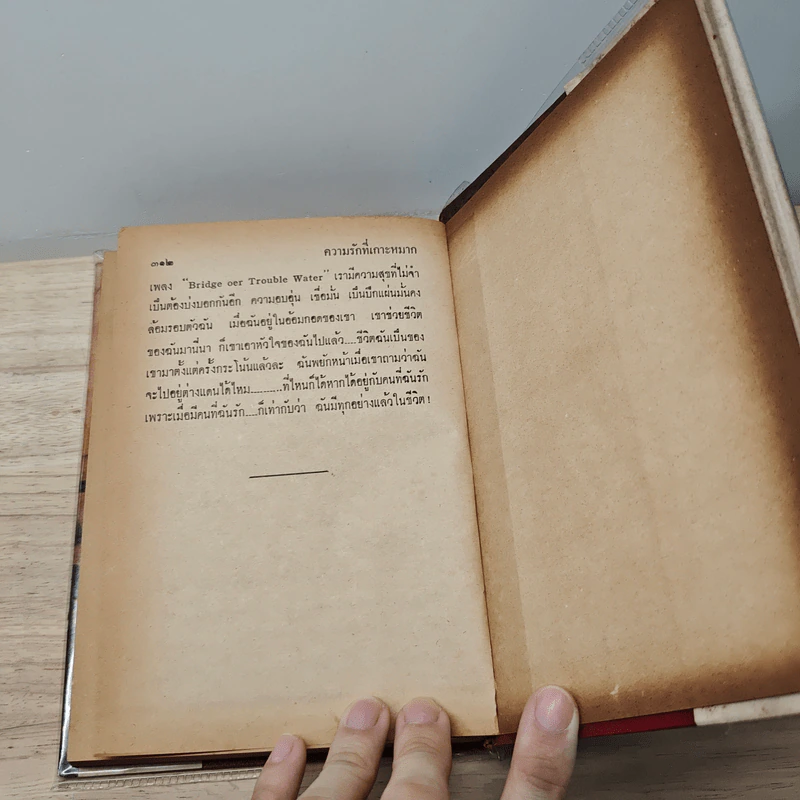 ๓๑๒ ความรักที่เกาะหมาก
เพลง "Bridge oer Trouble Water" เรามีความสุขที่ไม่จำ
เป็นต้องบ่งบอกกันอีก ความอบอุ่น เชื่อมั่น เป็นปึกแผ่นมั่นคง
ล้อมรอบตัวฉัน เมื่อฉันอยู่ในอ้อมกอดของเขา เขาช่วยชีวิต
ของฉันมานี่นา ก็เขาเอาหัวใจของฉันไปแล้ว....ชีวิตฉันเป็นของ
เขามาตั้งแต่ครั้งกระโน้นแล้วละ ฉันพยักหน้าเมื่อเขาถามว่าฉัน
จะไปอยู่ต่างแดนได้ไหม..........ที่ไหนก็ได้หากได้อยู่กับคนที่ฉันรัก
เพราะเมื่อมีคนที่ฉันรัก....ก็เท่ากับว่า ฉันมีทุกอย่างแล้วในชีวิต!